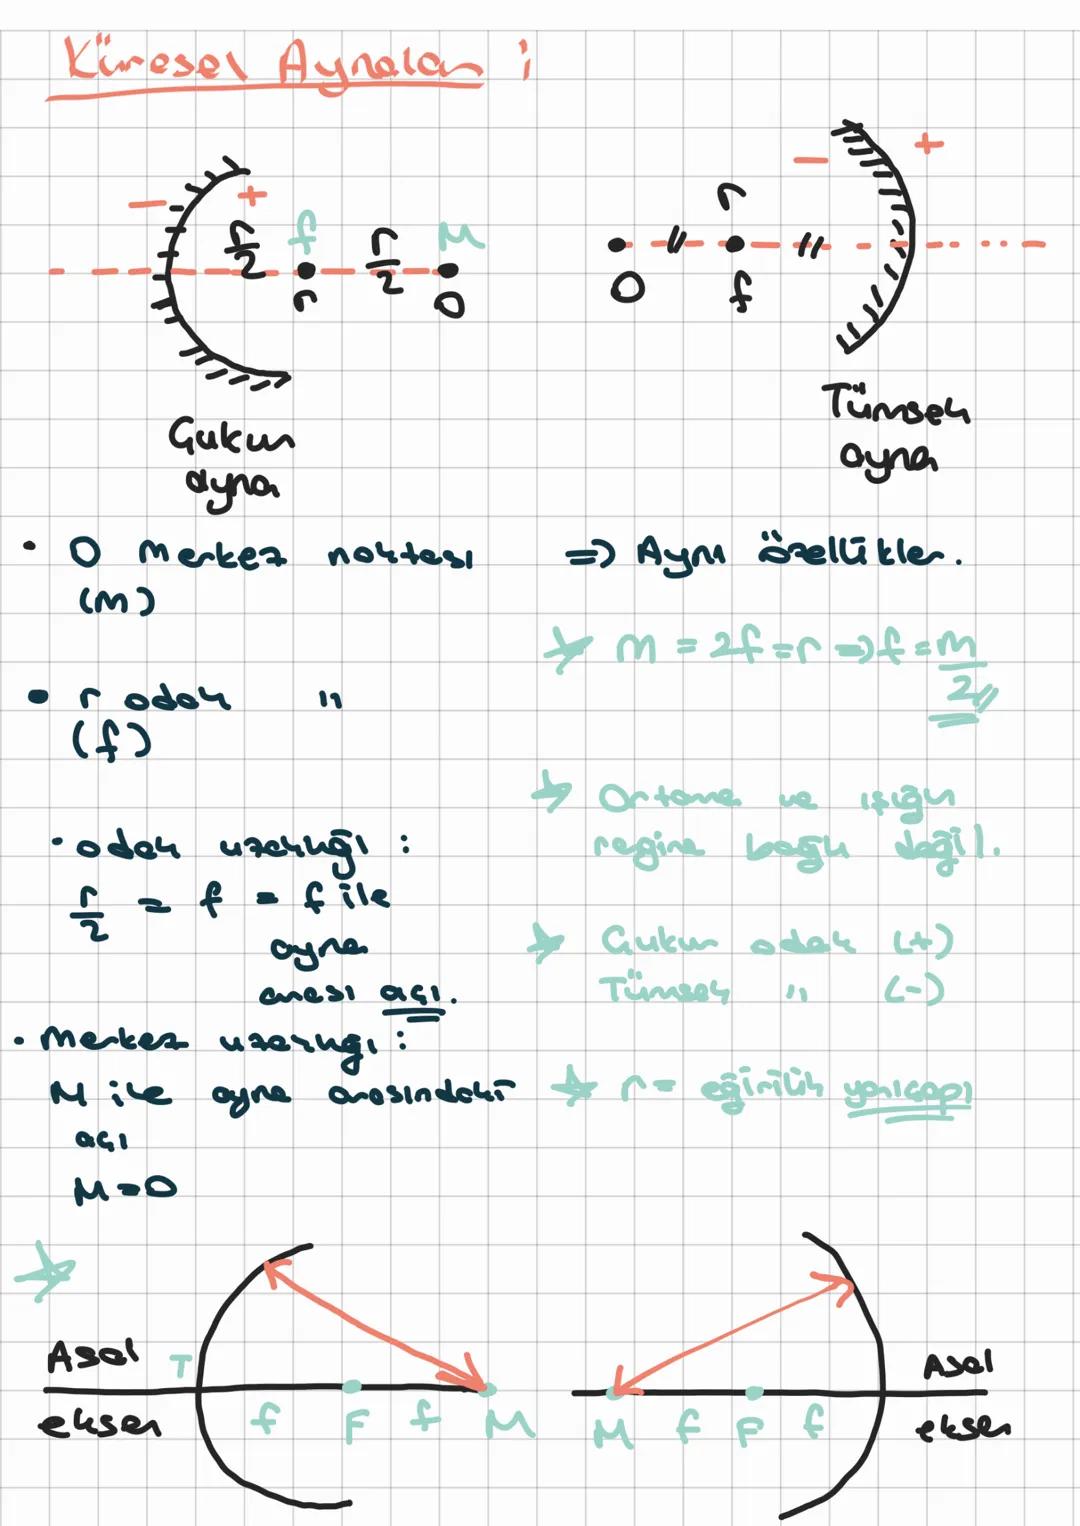 Küresel Aynalar ;
− + − +
r/2 f r/2 M
r O
r
O f
Çukur
ayna
Tümsek
ayna
• O merkez noktası
(m)
=> Aynı özellükler.
m = 2f = r => f = m/2
• r odak "
(f)
Ortama ve ışığın
regine bağlı değil.
• odak uzaklığı :
r/2 = f = f ile
ayna
arası açı.
Çukur odak (+)
Tümsek " (-)
• Merkez uzaklığı :
M ile ayna arasındaki
açı
M=O
r = eğirilik yarıçapı
Asal T
eksen
f F f M
M f F f
Asal
eksen